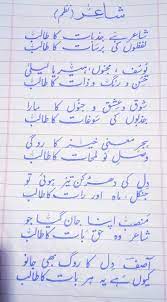 شاعر (نظم)
شاعر ہے جذبات کا طالب
لفظوں کی برسات کا طالب
یوسف، مجنوں، ہیر یا لیلیٰ
حسن و رنگ و ذات کا طالب
شوق و عشق و جنوں کا مارا
جذبوں کی سوغات کا طالب
ہجر معنی خیز کا روگی
وصل تو لمحات کا طالب
دل کی دھڑکن تیز ہوئی تو
جنگل، ماہ اور رات کا طالب
منصب اپنا جان گیا جو
شاعر وہ حق بات کا طالب
آصف دل کا روگ بھی جانو
کیوں ہے یہ ہر بات کا طالب